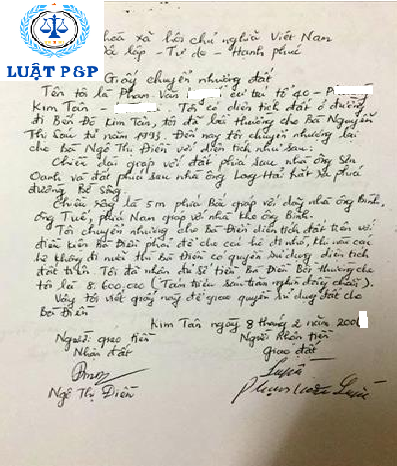 LUẬT P&P
hoà xã hội chủ nghĩa Việt Nam
Độc lập - Tự do - Hạnh phúc
Giấy chuyển nhượng đất
Tên tôi là Phan Văn cư trú tổ 40 - P
Kim Tân - Tôi có diện tích đất ở đường
đi Bến Đá Kim Tân, tôi đã bồi thường cho Bà Nguyễn
Thị Sáu từ năm 1993. Đến nay tôi chuyển nhượng lại
cho Bà Ngô Thị Điền với diện tích như sau:
Chiều dài giáp với đất phía sau nhà ông Sơn
Oanh và đất phía sau nhà ông Long Hải hất ra phía
đường Bờ Sông.
Chiều rộng là 5m phía Bắc giáp với dãy nhà ông Bình,
ông Tuế, phía Nam giáp với nhà kho ông Bình.
Tôi chuyển nhượng cho Bà Điền diện tích đất trên với
điều kiện Bà Điền phải để cho các hộ đi nhờ, khi nào các
hộ không đi nữa thì Bà Điền có quyền sử dụng diện tích
đất trên. Tôi đã nhận đủ số tiền Bà Điền Bồi thường cho
tôi là 8.600.000 (Tám triệu sáu trăm nghìn đồng chẵn).
Vậy tôi viết giấy này để giao quyền sử dụng đất cho
Bà Điền
Kim Tân ngày 8 tháng 2 năm 200
Người giao tiền Người nhận tiền
Nhận đất Giao đất
Ngô Thị Điền